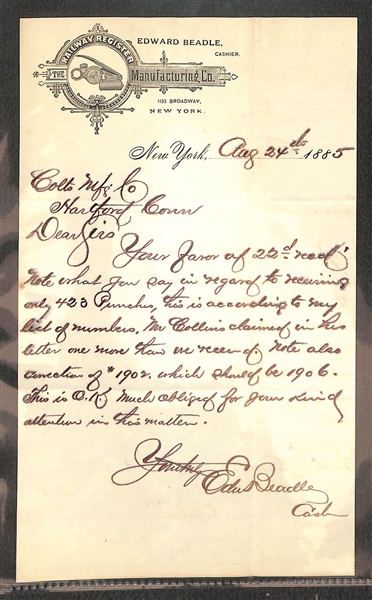 EDWARD BEADLE,
CASHIER.
THE RAILWAY REGISTER
Manufacturing Co.
1193 BROADWAY,
NEW YORK.
New York, Aug 24th 1885
Colts Mfg Co
Hartford Conn
Dear Sirs
Your favor of 22d recd
Note what you say in regard to receiving
only 423 Punches, this is according to my
list of numbers. Mr Collins claimed in his
letter one more than we received. Note also
correction of # 1902. which should be 1906.
This is O.K. Much obliged for your kind
attention in this matter.
Yours truly
Edwd Beadle
Cash